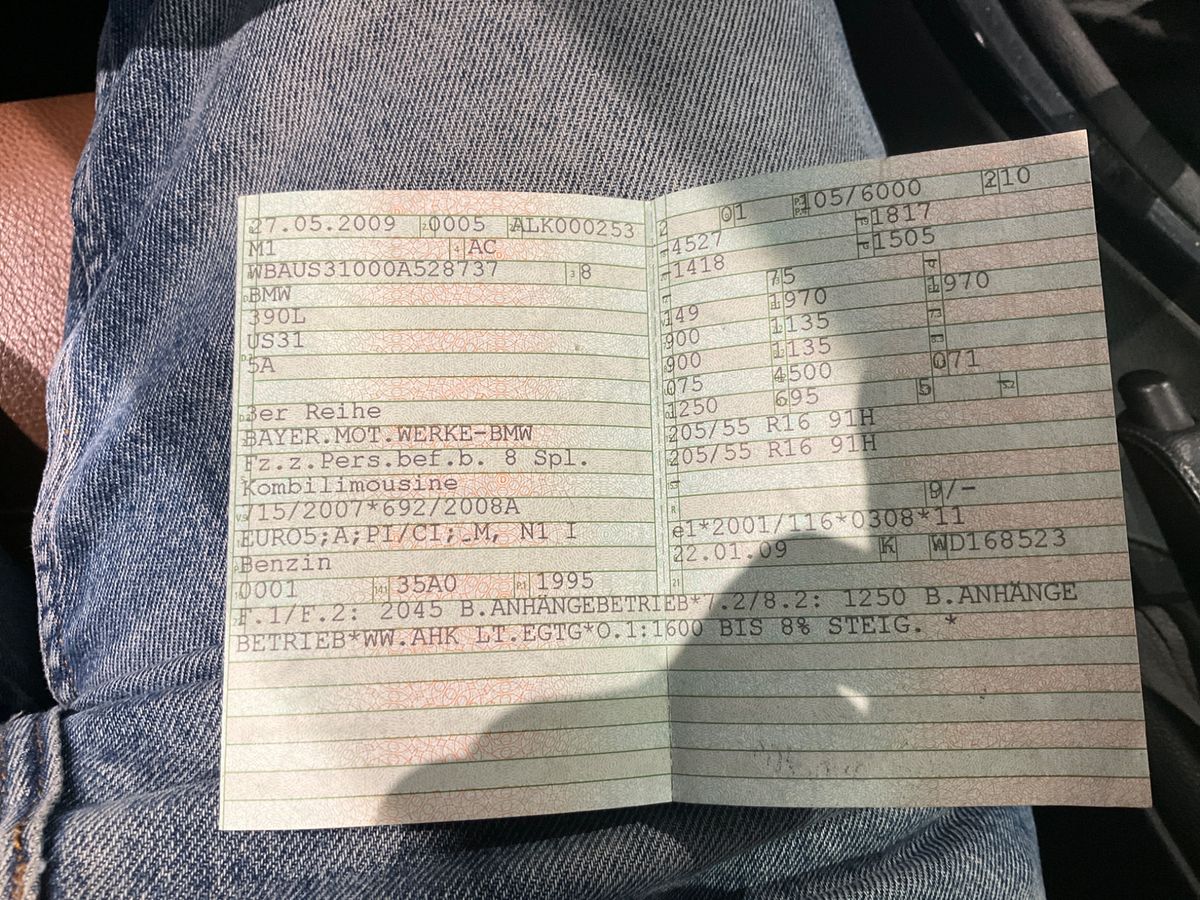 27.05.2009 0005 ALK000253
M1 AC
WBAUS31000A528737 8
BMW
390L
US31
5A
3er Reihe
BAYER.MOT.WERKE-BMW
Fz.z.Pers.bef.b. 8 Spl.
Kombilimousine
715/2007*692/2008A
EURO5;A;PI/CI; M, N1 I
Benzin
0001 35A0 1995
01 105/6000 210
4527 1817
1418 1505
75
149 1970 1970
900 1135
900 1135
075 4500 071
1250 695 5
205/55 R16 91H
205/55 R16 91H
9/-
e1*2001/116*0308*11
22.01.09 K WD168523
F.1/F.2: 2045 B.ANHÄNGEBETRIEB*7.2/8.2: 1250 B.ANHÄNGE
BETRIEB*WW.AHK LT.EGTG*O.1:1600 BIS 8% STEIG. *